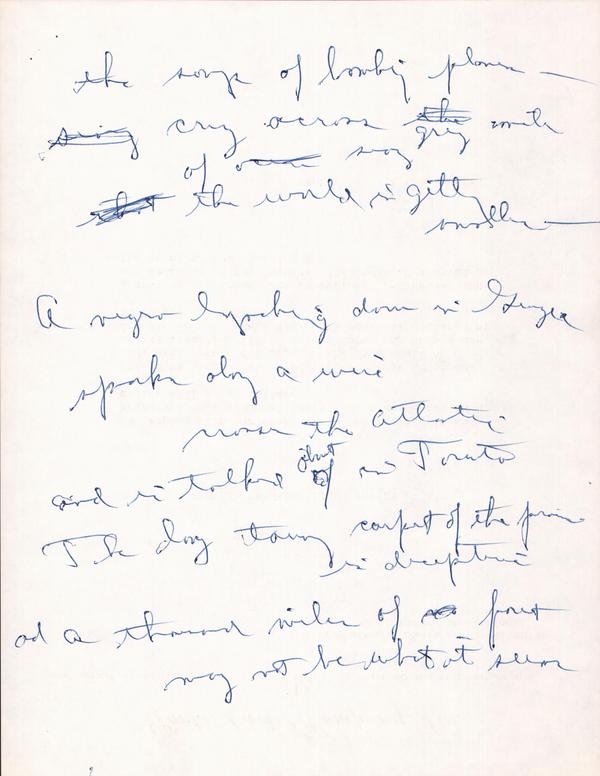 the songs of bombing planes —
cry across grey miles
of sea
the world is getting
smaller —
A negro lynching down in Georgia
sparks along a wire
across the Atlantic
and is talked about in Toronto
The long tawny carpet of the prairie
is deceptive
and a thousand miles of forest
may not be what it seems